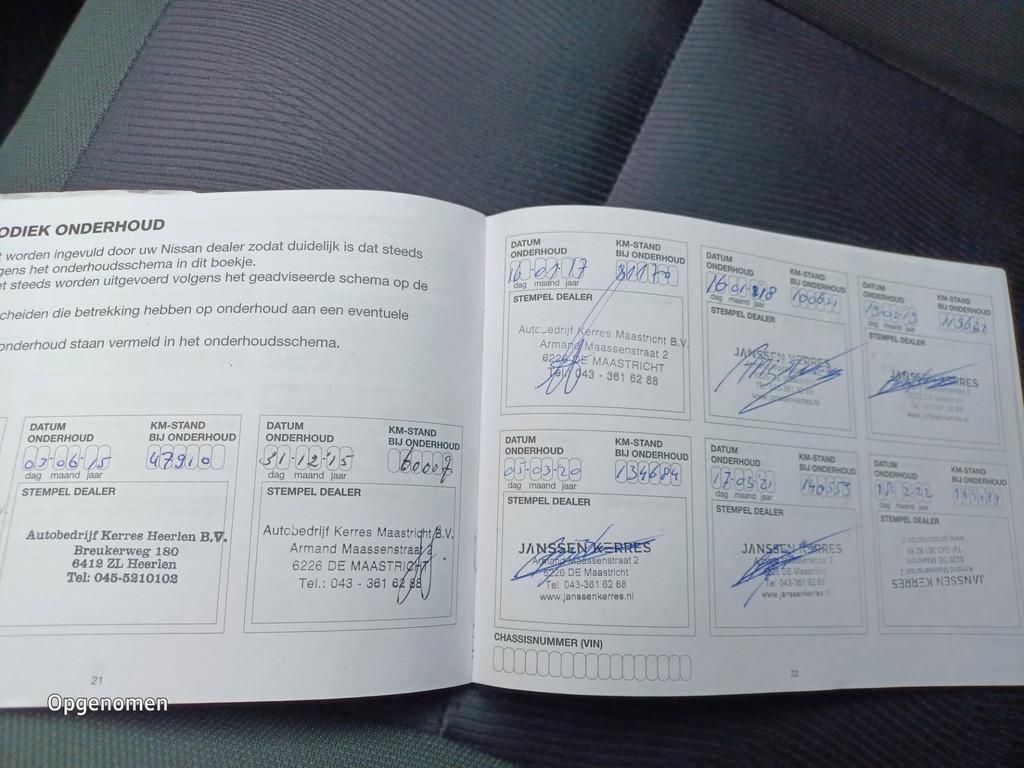 ODIEK ONDERHOUD
t worden ingevuld door uw Nissan dealer zodat duidelijk is dat steeds
gens het onderhoudsschema in dit boekje.
et steeds worden uitgevoerd volgens het geadviseerde schema op de
scheiden die betrekking hebben op onderhoud aan een eventuele
onderhoud staan vermeld in het onderhoudsschema.
DATUM ONDERHOUD
KM-STAND BIJ ONDERHOUD
03-06-15
47910
dag maand jaar
STEMPEL DEALER
Autobedrijf Kerres Heerlen B.V.
Breukerweg 180
6412 ZL Heerlen
Tel: 045-5210102
DATUM ONDERHOUD
KM-STAND BIJ ONDERHOUD
31-12-15
60007
dag maand jaar
STEMPEL DEALER
Autobedrijf Kerres Maastricht B.V.
Armand Maassenstraat 2
6226 DE MAASTRICHT
Tel.: 043 - 361 62 88
21
DATUM ONDERHOUD
KM-STAND BIJ ONDERHOUD
16-01-17
81170
dag maand jaar
STEMPEL DEALER
Autobedrijf Kerres Maastricht B.V.
Armand Maassenstraat 2
6226 DE MAASTRICHT
Tel.: 043 - 361 62 88
DATUM ONDERHOUD
KM-STAND BIJ ONDERHOUD
16-01-18
dag maand jaar
STEMPEL DEALER
JANSSEN KERRES
DATUM ONDERHOUD
KM-STAND BIJ ONDERHOUD
dag maand jaar
STEMPEL DEALER
JANSSEN KERRES
DATUM ONDERHOUD
KM-STAND BIJ ONDERHOUD
05-03-20
134684
dag maand jaar
STEMPEL DEALER
JANSSEN KERRES
Armand Maassenstraat 2
6226 DE Maastricht
Tel: 043-361 62 88
www.janssenkerres.nl
DATUM ONDERHOUD
KM-STAND BIJ ONDERHOUD
17-03-21
140553
dag maand jaar
STEMPEL DEALER
JANSSEN KERRES
Armand Maassenstraat 2
6226 DE Maastricht
Tel: 043-361 62 88
www.janssenkerres.nl
DATUM ONDERHOUD
KM-STAND BIJ ONDERHOUD
18-2-22
dag maand jaar
STEMPEL DEALER
JANSSEN KERRES
Armand Maassenstraat 2
6226 DE Maastricht
Tel: 043-361 62 88
www.janssenkerres.nl
CHASSISNUMMER (VIN)
22
Opgenomen